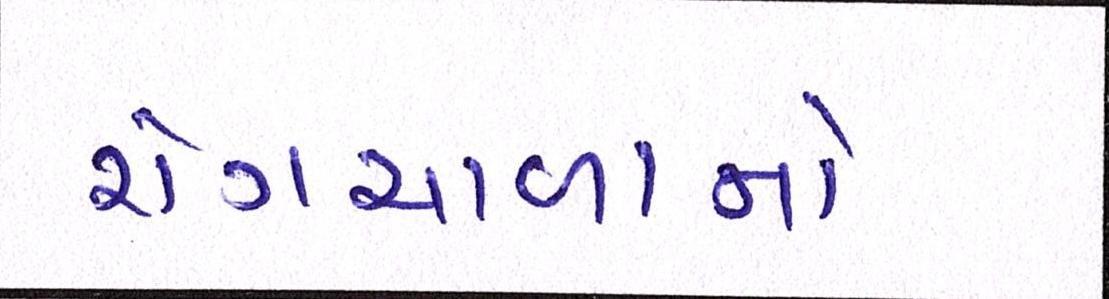 રોગચાળાનો